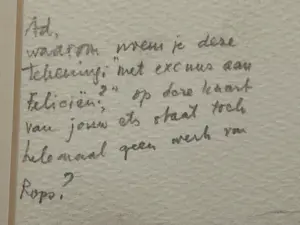 Ad,
waarom noem je deze
tekening: "met excuus aan
Feliciën?" op deze kaart
van jouw ets staat toch
helemaal geen werk van
Rops?